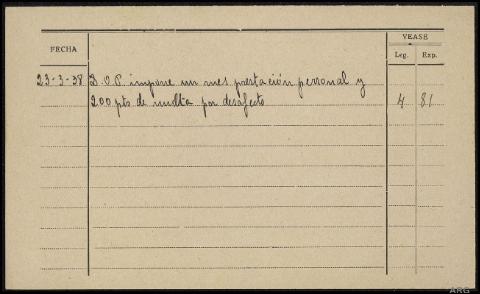 VEASE
FECHA
Leg. Exp.
23-3-38 D.O.P. impone un mes prestación personal y
200 pts de multa por desafecto 4 81
ARG